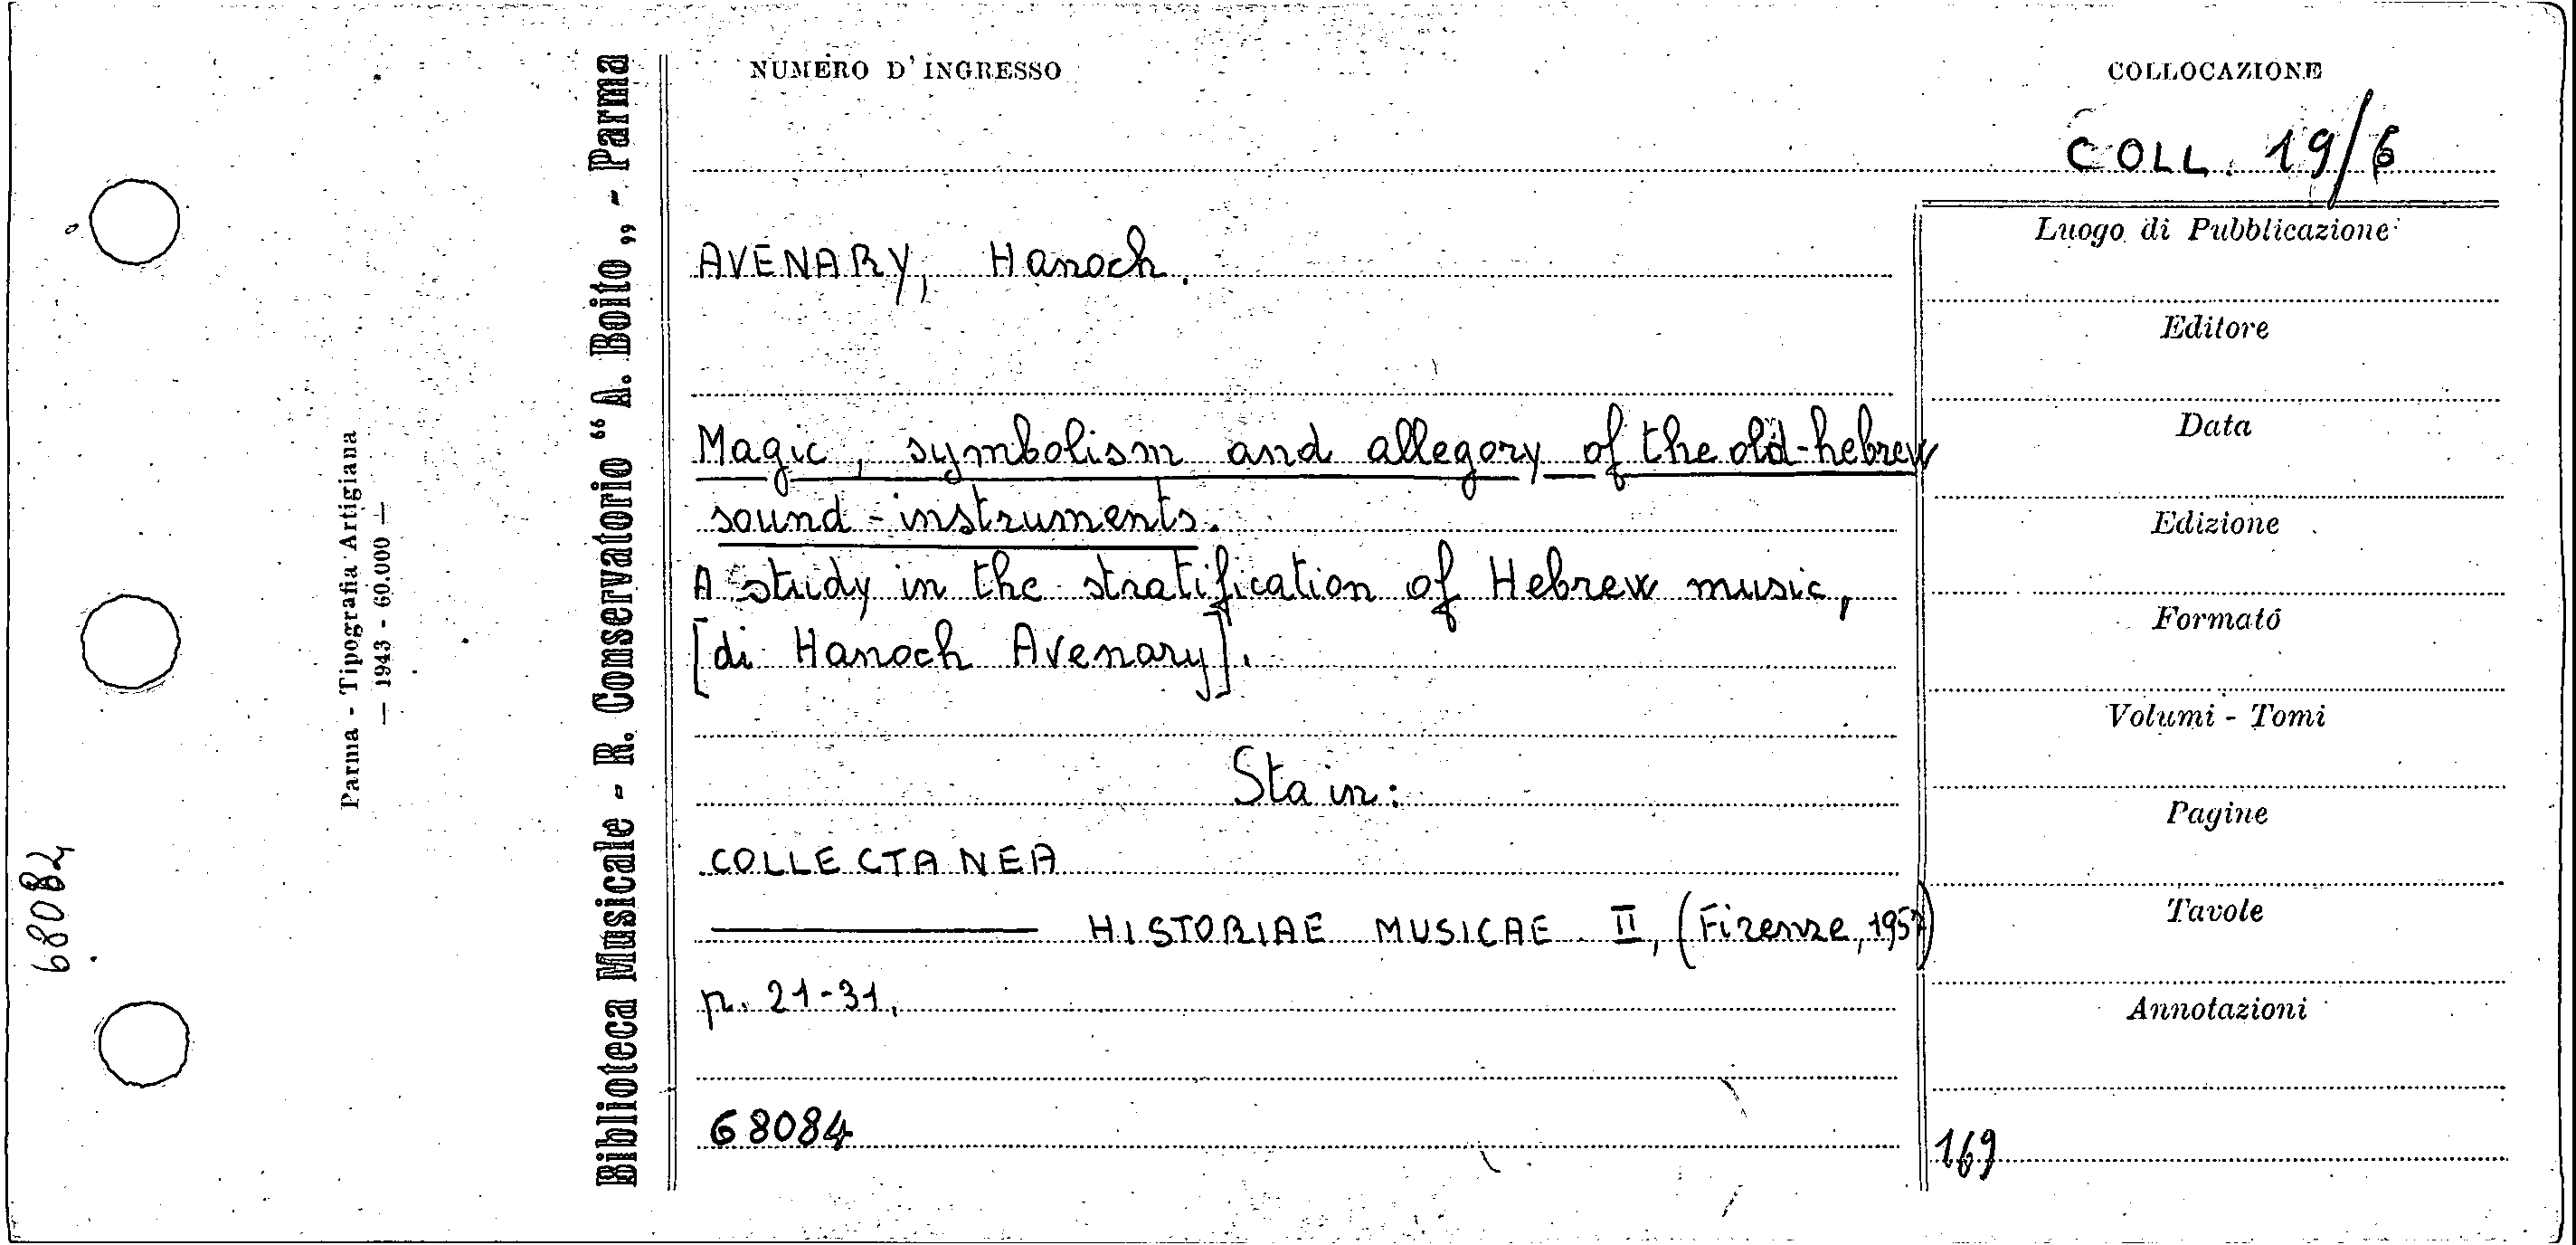 NUMERO D'INGRESSO
COLLOCAZIONE
COLL. 19/6
AVENARY, Hanoch.
Magic, symbolism and allegory of the old-hebrew
sound-instruments.
A study in the stratification of Hebrew music,
[di Hanoch Avenary].
Sta in:
COLLECTANEA
——— HISTORIAE MUSICAE II, (Firenze, 1957)
p. 21-31,
68084
Luogo di Pubblicazione
Editore
Data
Edizione
Formato
Volumi - Tomi
Pagine
Tavole
Annotazioni
169
Biblioteca Musicale - R. Conservatorio “A. Boito„ - Parma
Parma - Tipografia Artigiana
— 1943 - 60.000 —
68084